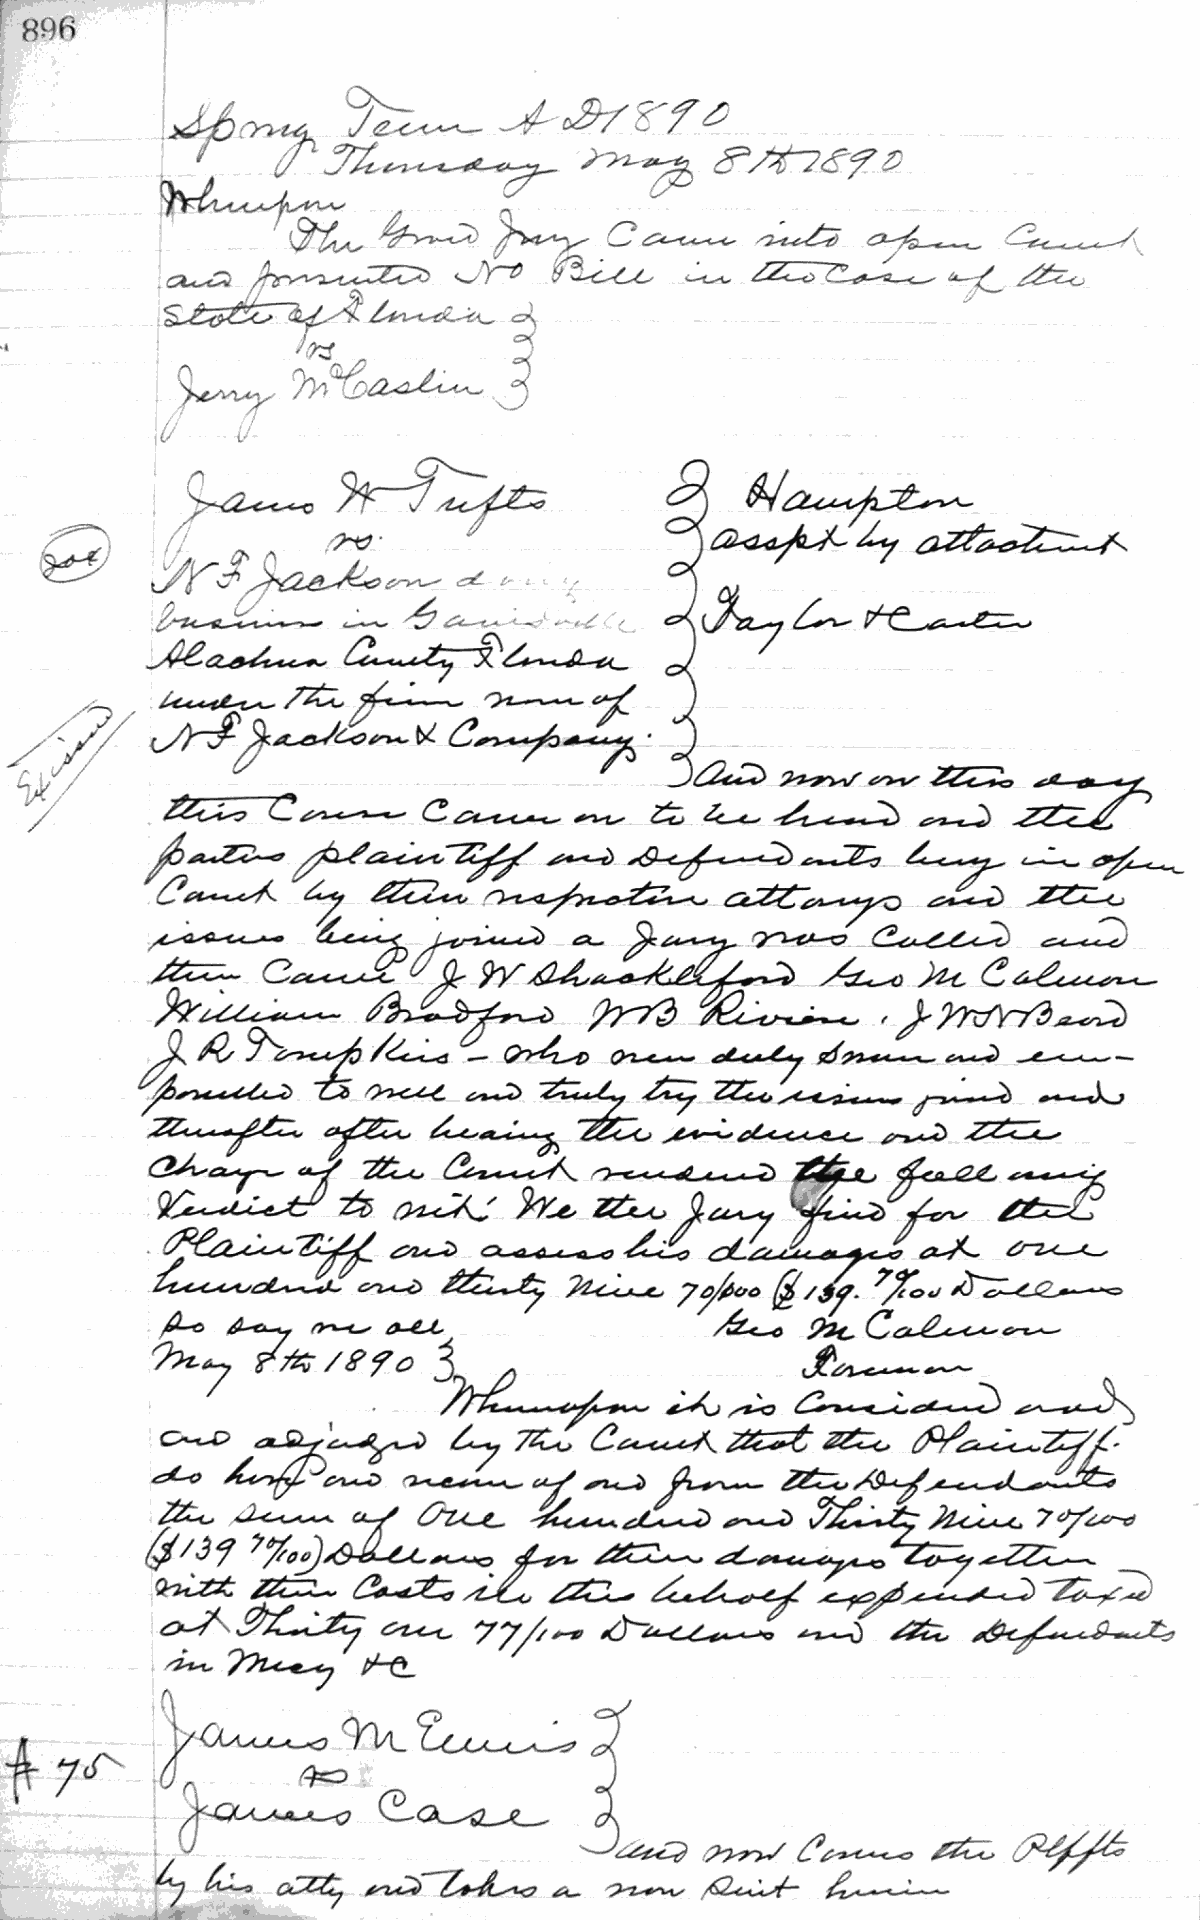 896
Spring Term A D 1890
Thursday May 8th 1890
Whereupon
The Grand Jury Came into open Court
and presented No Bill in the Case of the
State of Florida
vs
Jerry McCaslin
James W Tufts
vs.
N F Jackson doing
business in Gainesville
Alachua County Florida
under the firm name of
N F Jackson & Company.
Hampton
asspt by attachment
Taylor & Carter
204
Ex issued
and now on this day
this Cause Came on to be heard and the
parties plaintiff and Defendants being in open
Court by their respective attorneys and the
issues being joined a Jury was Called and
then Came J W Shackleford Geo M Calmon
William Bradford W B Riviere, J W N Beard
J R Tompkins – who were duly sworn and em-
panelled to well and truly try the issues joined and
thereafter after hearing the evidence and the
Charge of the Court rendered the following
Verdict to wit: We the Jury find for the
Plaintiff and assess his damages at one
hundred and thirty Nine 70/100 ($139. 70/100 Dollars
so say we all
Geo M Calmon
May 8th 1890
Foreman
Whereupon it is Considered and
and adjudged by the Court that the Plaintiff.
do have and recover of and from the Defendants
the sum of One hundred and Thirty Nine 70/100
($139 70/100) Dollars for their damages together
with their Costs in this behalf expended taxed
at Thirty one 77/100 Dollars and the Defendants
in Mercy &C
# 75
James M Ennis
vs
James Case
and now Comes the Plffts
by his atty and takes a non Suit herein